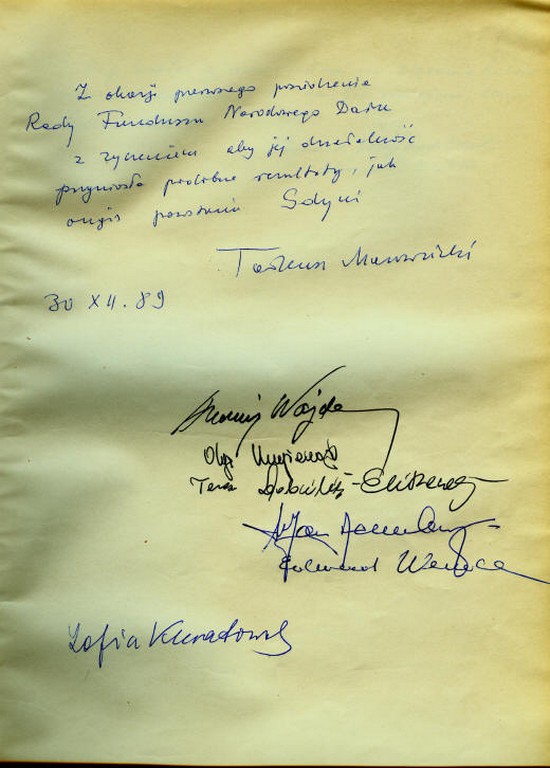 Z okazji pierwszego posiedzenia
Rady Funduszu Narodowego Daru
z życzeniem aby jej działalność
przyniosła podobne rezultaty, jak
ongiś powstanie Gdyni
Tadeusz Mazowiecki
30 XII. 89
Andrzej Wajda
Olga Krzyżanowska
Teresa
Jan
Edmund
Zofia Kuratowska